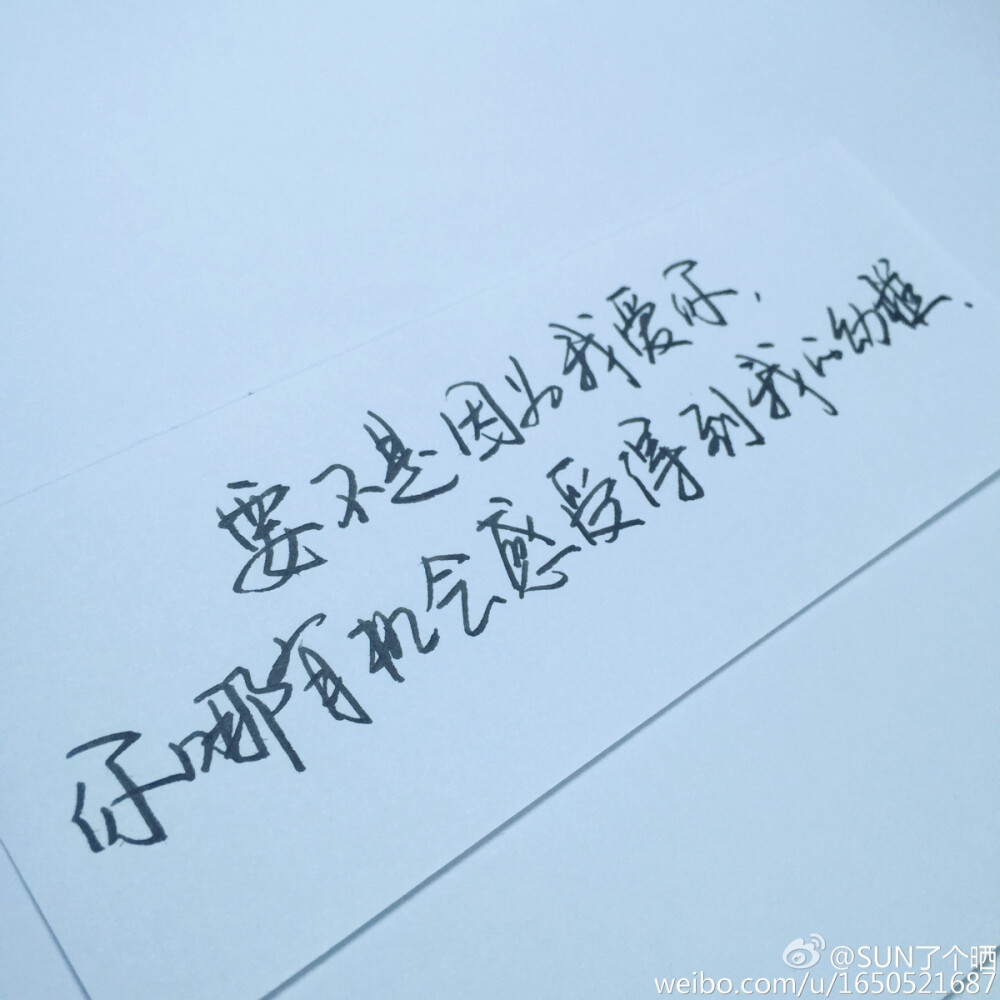 要不是因为我爱你.
你哪有机会感受得到我的幼稚.
@SUN了个晒
weibo.com/u/1650521687